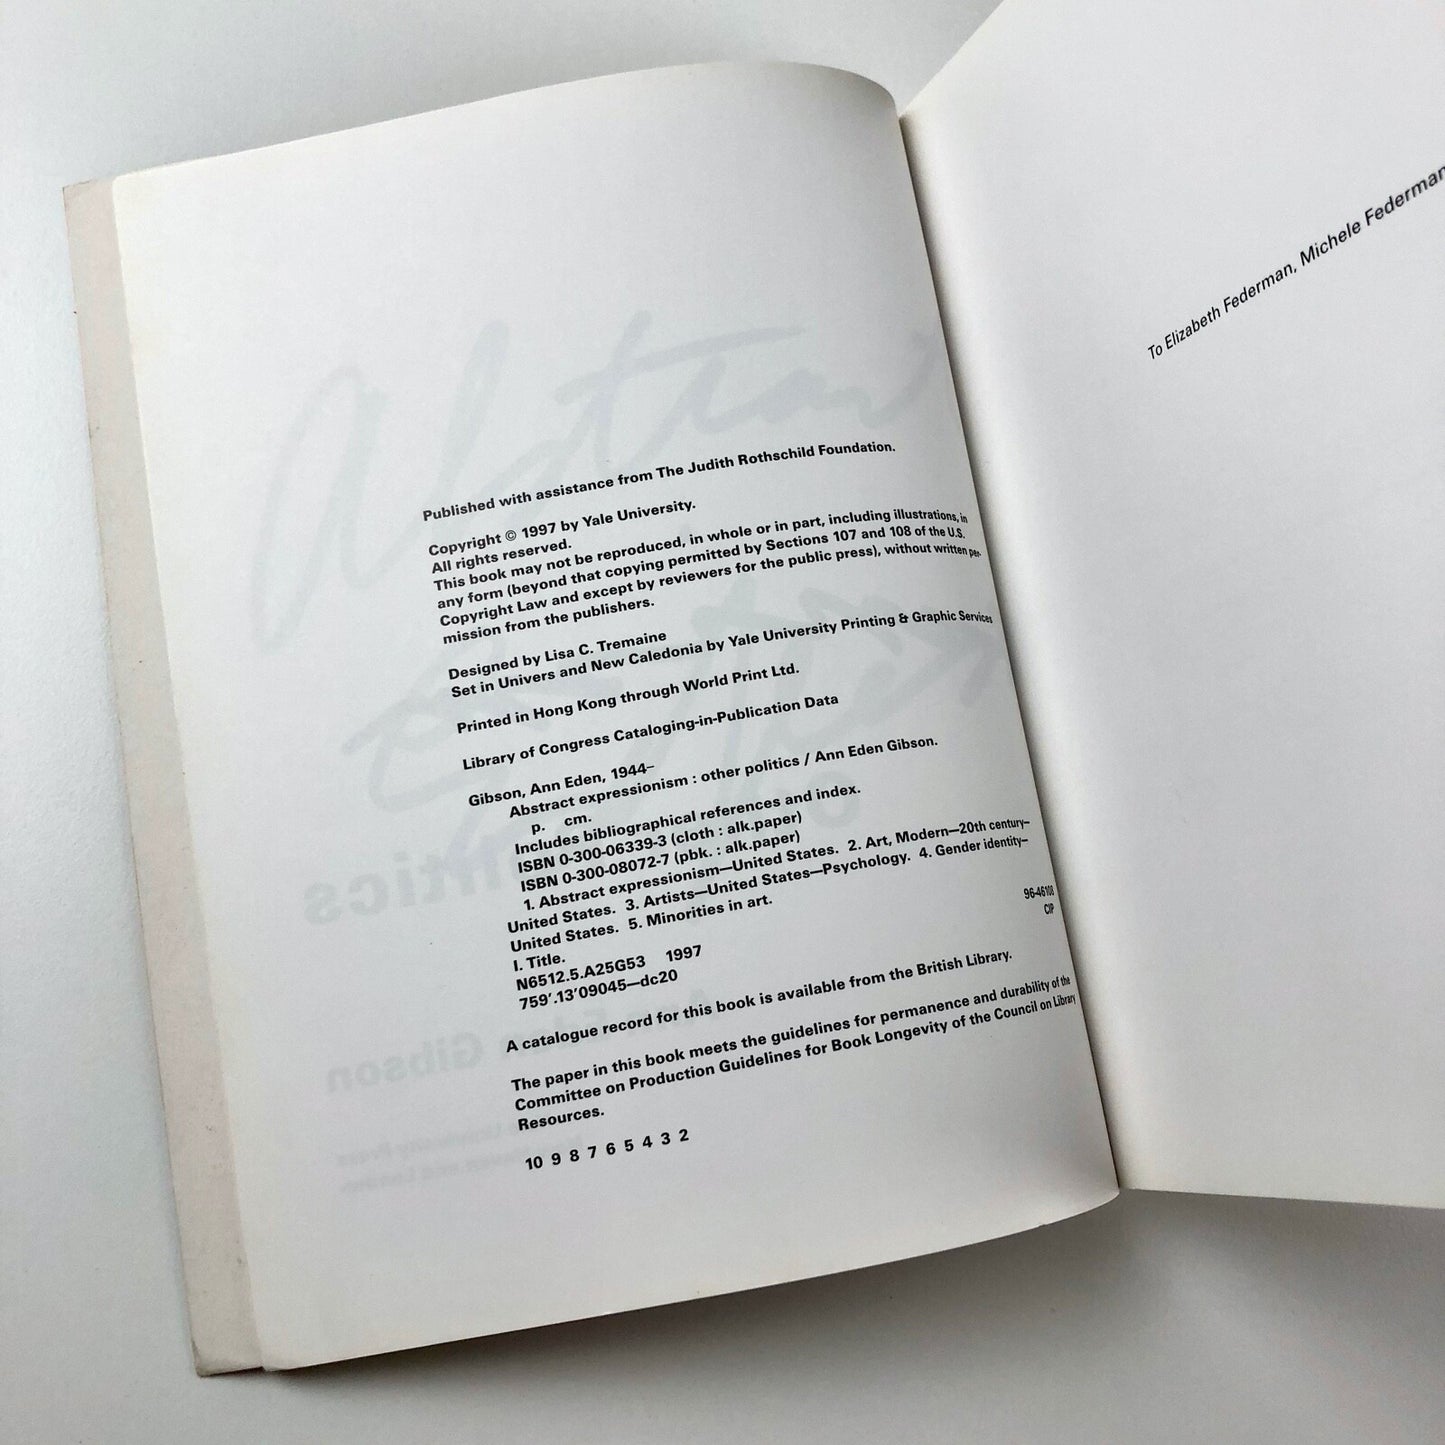 Published with assistance from The Judith Rothschild Foundation.
Copyright © 1997 by Yale University.
All rights reserved.
This book may not be reproduced, in whole or in part, including illustrations, in
any form (beyond that copying permitted by Sections 107 and 108 of the U.S.
Copyright Law and except by reviewers for the public press), without written per-
mission from the publishers.
Designed by Lisa C. Tremaine
Set in Univers and New Caledonia by Yale University Printing & Graphic Services
Printed in Hong Kong through World Print Ltd.
Library of Congress Cataloging-in-Publication Data
Gibson, Ann Eden, 1944–
Abstract expressionism : other politics / Ann Eden Gibson.
p. cm.
Includes bibliographical references and index.
ISBN 0-300-06339-3 (cloth : alk.paper)
ISBN 0-300-08072-7 (pbk. : alk.paper)
1. Abstract expressionism—United States. 2. Art, Modern—20th century–
United States. 3. Artists—United States—Psychology. 4. Gender identity–
United States. 5. Minorities in art.
I. Title.
N6512.5.A25G53 1997
759'.13'09045—dc20
96-46108
CIP
A catalogue record for this book is available from the British Library.
The paper in this book meets the guidelines for permanence and durability of the
Committee on Production Guidelines for Book Longevity of the Council on Library
Resources.
10 9 8 7 6 5 4 3 2
To Elizabeth Federman, Michele Federman